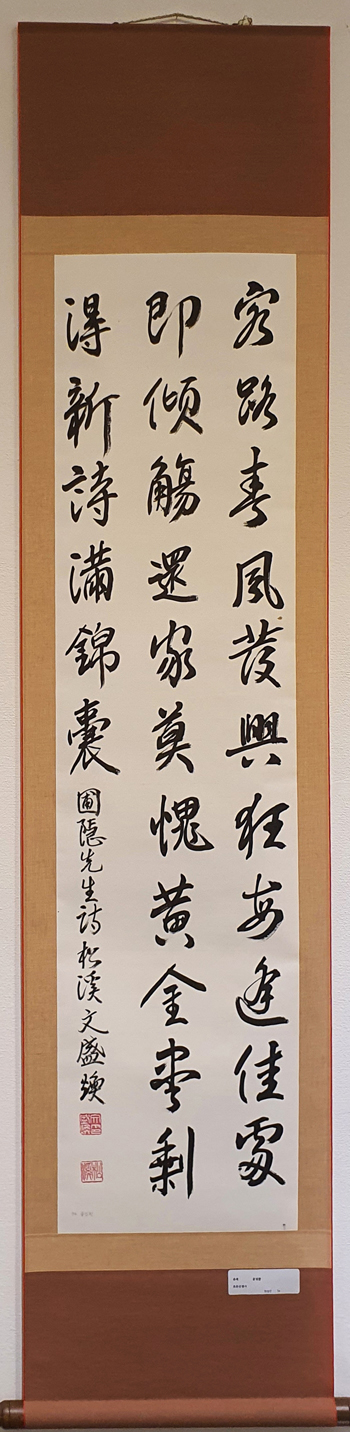 客路春風發興狂每逢佳處
即傾觴還家莫愧黃金盡剩
得新詩滿錦囊 圃隱先生詩 松溪 文盛煥